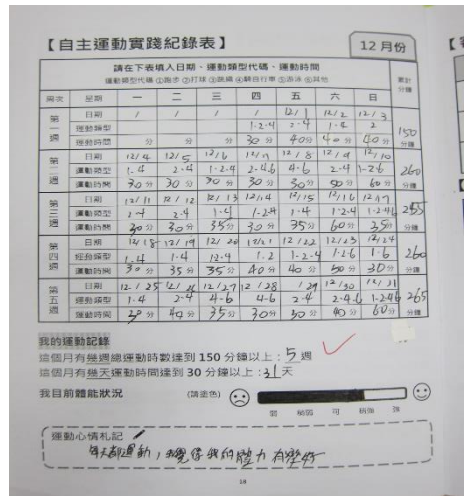 【自主運動實踐紀錄表】 12 月份
請在下表填入日期、運動類型代碼、運動時間
運動類型代碼 ①跑步 ②打球 ③跳繩 ④騎自行車 ⑤游泳 ⑥其他
累計分鐘
周次 星期 一 二 三 四 五 六 日
第一週 日期 / / / / 12/1 12/2 12/3
運動類型 1.2.4 2.4 1.4 2
運動時間 分 分 分 30分 40分 40分 40分 150分鐘
第二週 日期 12/4 12/5 12/6 12/7 12/8 12/9 12/10
運動類型 1.4 2.4 1.2.4 2.4.6 4.6 2.4 1.2.6
運動時間 30分 30分 30分 30分 30分 50分 60分 260分鐘
第三週 日期 12/11 12/12 12/13 12/14 12/15 12/16 12/17
運動類型 2.4 2.4 1.4 1.2.4 1.4 1.2.4 1.2.4.6
運動時間 30分 30分 35分 30分 35分 60分 35分 255分鐘
第四週 日期 12/18 12/19 12/20 12/21 12/22 12/23 12/24
運動類型 1.4 1.4 1.2.4 1.2 1.2.4 1.2.6 1.6
運動時間 30分 35分 35分 40分 40分 50分 30分 260分鐘
第五週 日期 12/25 12/26 12/27 12/28 /29 12/30 12/31
運動類型 1.4 2.4 4.6 4.6 2.4 2.4.6 1.2.4.6
運動時間 30分 40分 35分 30分 30分 40分 60分 265分鐘
我的運動記錄
這個月有幾週總運動時數達到 150 分鐘以上：5週
這個月有幾天運動時間達到 30 分鐘以上：31天
我目前體能狀況 (請塗色)
弱 稍弱 可 稍強 強
運動心情札記
每天都運動，我覺得我的體力有變好